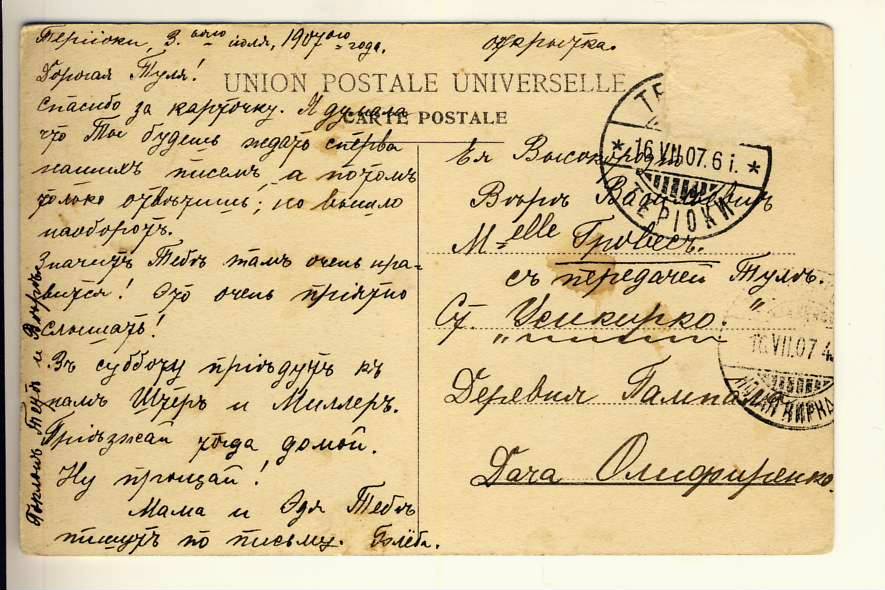 Терiоки, 3.аго iюля, 1907ого года.
открытка.
Дорогая Туля!
UNION POSTALE UNIVERSELLE
спасибо за карточку. Я думала
CARTE POSTALE
что Ты будешь ждать сперва
нашихъ писемъ, а потомъ
только отвѣтишь; но вышло
наоборотъ.
Значитъ Тебѣ тамъ очень нра-
вится! Это очень прiятно
слышать!
Въ субботу прiѣдутъ къ
намъ Штеръ и Миллеръ.
Прiѣзжай тогда домой.
Ну прощай!
Мама и Эдя Тебѣ
пишутъ по письму.
Поклонъ Тетѣ и Вѣрѣ.
Ея Высокородiю
Вѣрѣ
Melle Гровесъ.
съ передачей Тулѣ.
Ст. Усикирко.
Деревня
Дача Олиференко.
16.VII.07.6 i.
ТЕРIОКИ
16.VII.07 4
КИРКА